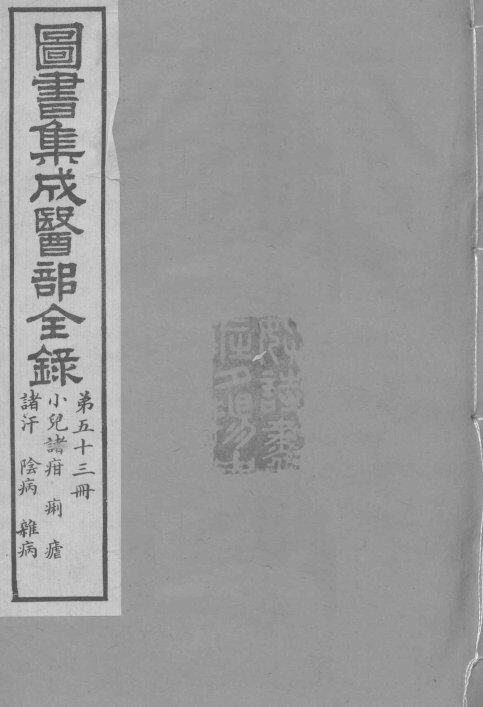 圖書集成醫部全錄
第五十三冊
小兒諸疳　痢　瘧
諸汗　陰病　雜病